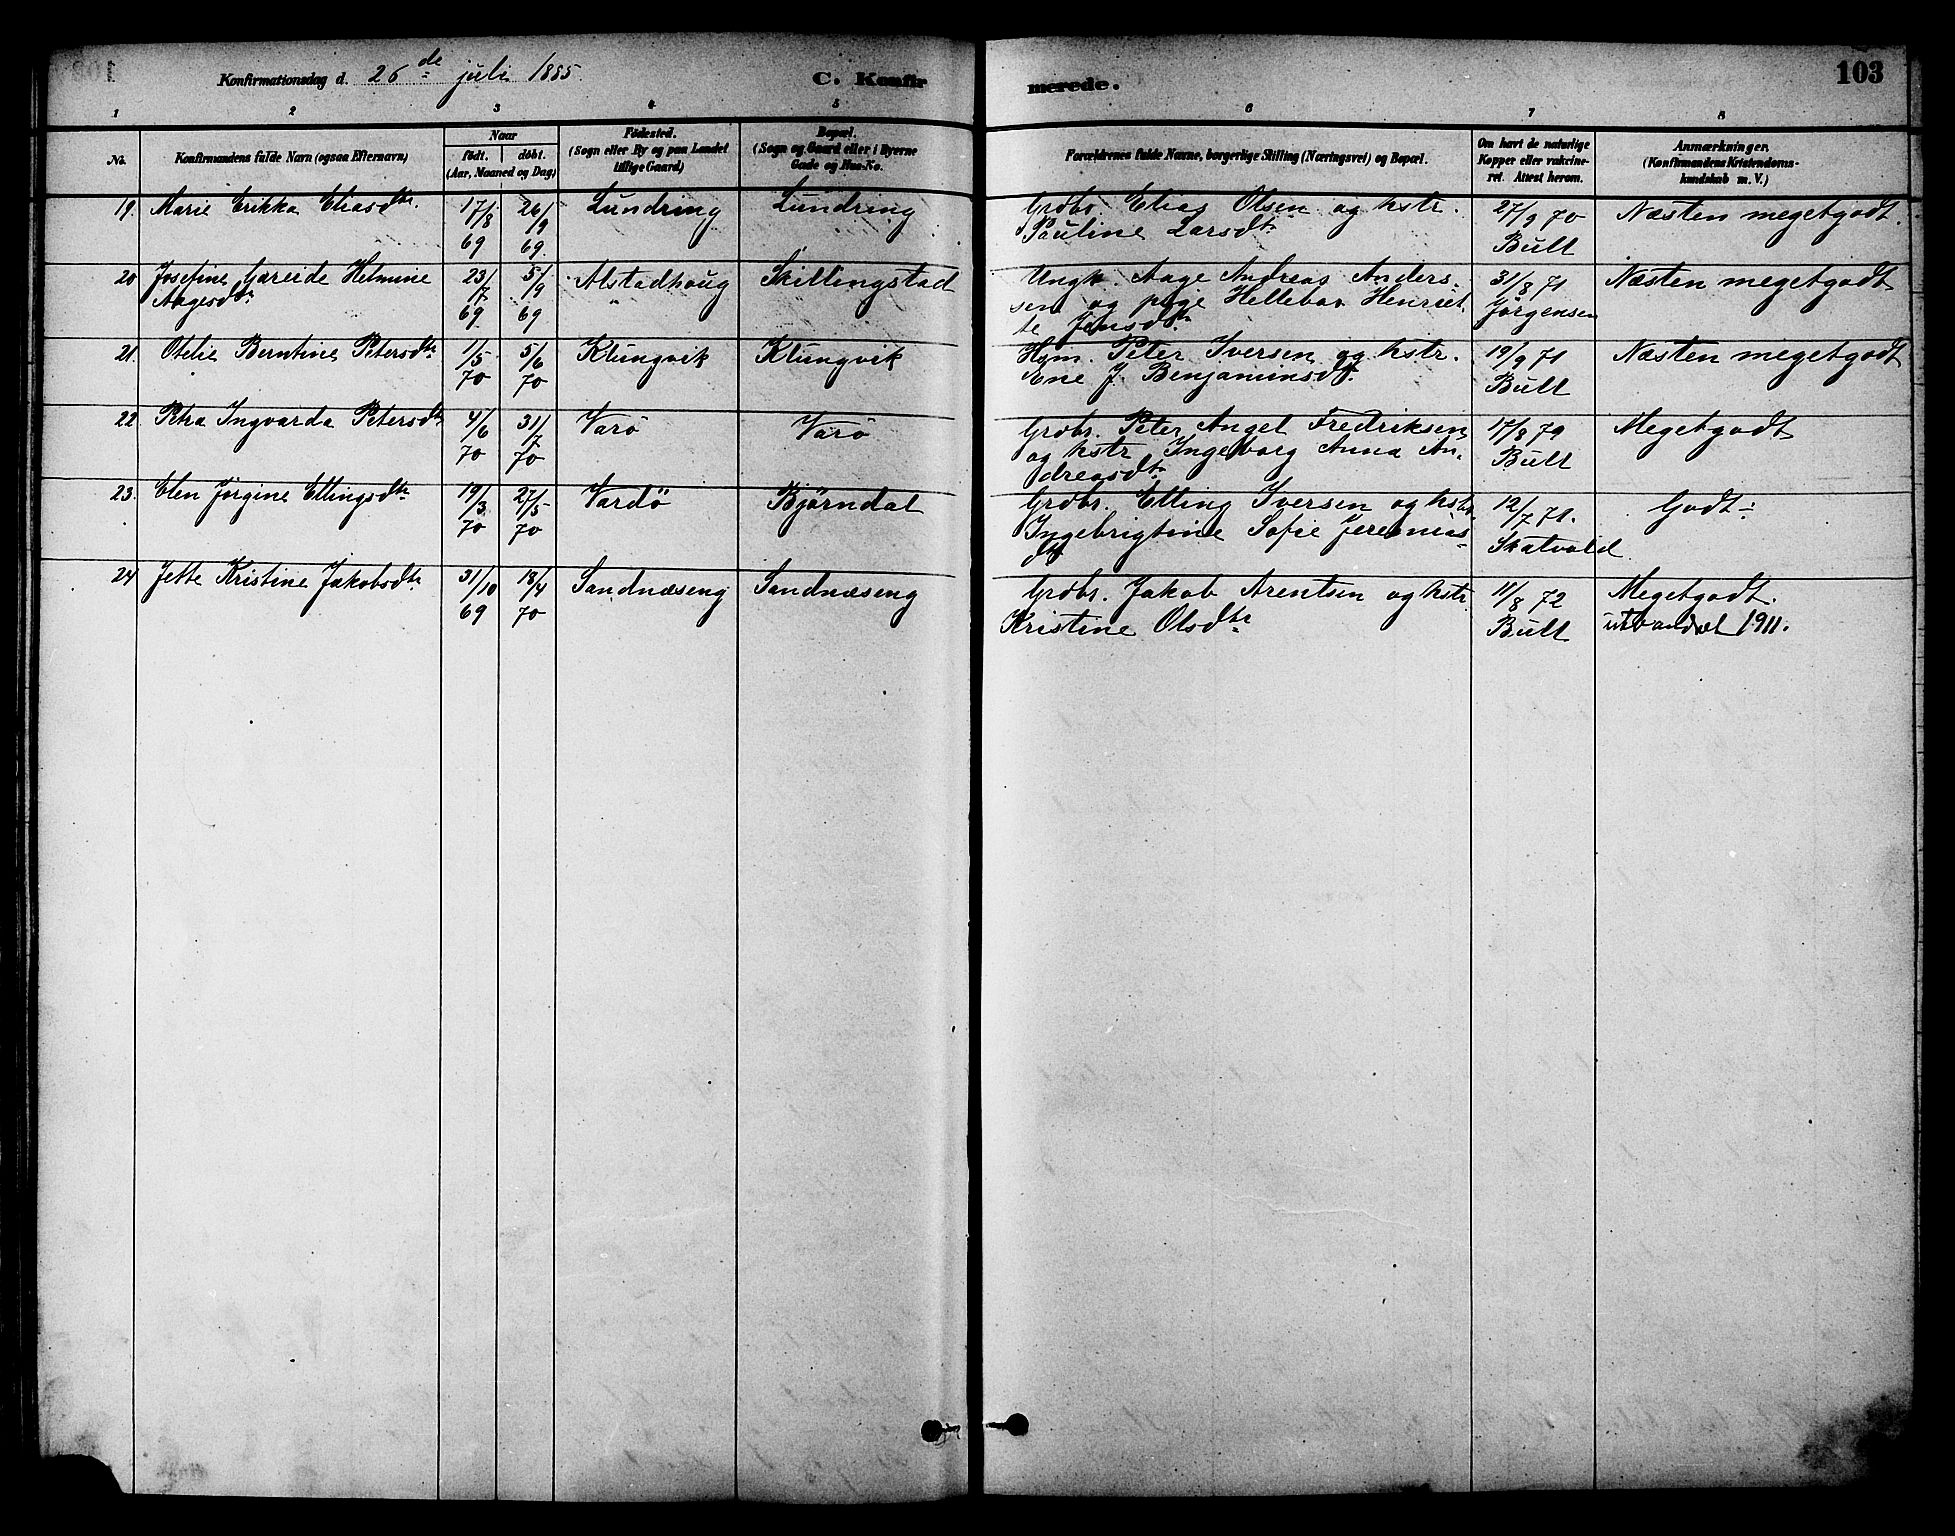 Konfirmationsdag d. 26de juli 1885.
C. Konfirmerede.
103
1 2 3 4 5 6 7 8
No.
Konfirmandens fulde Navn (ogsaa Efternavn)
Naar
født. døbt.
(Aar, Maaned og Dag)
Fødested.
(Sogn eller By og paa Landet
tillige Gaard)
Bopæl.
(Sogn og Gaard eller i Byerne
Gade og Hus-No.
Forældrenes fulde Navne, borgerlige Stilling (Næringsvei) og Bopæl.
Om havt de naturlige
Kopper eller vakcine-
ret. Attest herom.
Anmærkninger.
(Konfirmandens Kristendoms-
kundskab m. V.)
19. Marie Erikka Eliasdtr. 17/8 69 26/9 69. Lundring Lundring Grdbr. Elias Olsen og hstr. 27/9 70 Næsten megetgodt.
Pauline Larsdtr. Bull
20 Josefine Helmine 23/7 69 5/9 69 Alstadhoug Skillingstad Ungk. Aage Andreas Anders- 31/8 71 Næsten megetgodt
Aagesdtr. sen og pige Hellebor Henriet- Jørgensen
te Jensdtr.
21. Otelie Berntine Petersdtr. 1/5 70 5/6 70 Klungvik Klungvik Hsm. Peter Iversen og hstr. 19/9 71 Næsten megetgodt
Ene J. Benjaminsdtr. Bull
22 Petra Ingvarda Petersdtr 4/6 70 31/7 70 Varø Varø Grdbr. Peter Angel Fredriksen 17/8 79 Megetgodt
og hstr Ingeborg Anna An- Bull
dreasdtr.
23. Elen Jørgine Ellingsdtr 19/3 70 27/5 70 Vardö Bjørndal Grdbr. Elling Iversen og hstr. 12/7 71. Godt.
Ingebrigtine Sofie Jeremias- Skatvold
dtr
24 Jette Kristine Jakobsdtr. 31/10 69 18/4 70 Sandnæseng Sandnæseng Grdbr. Jakob Arentsen og hstr. 11/8 72 Megetgodt.
Kristine Olsdtr. Bull utvandret 1911.